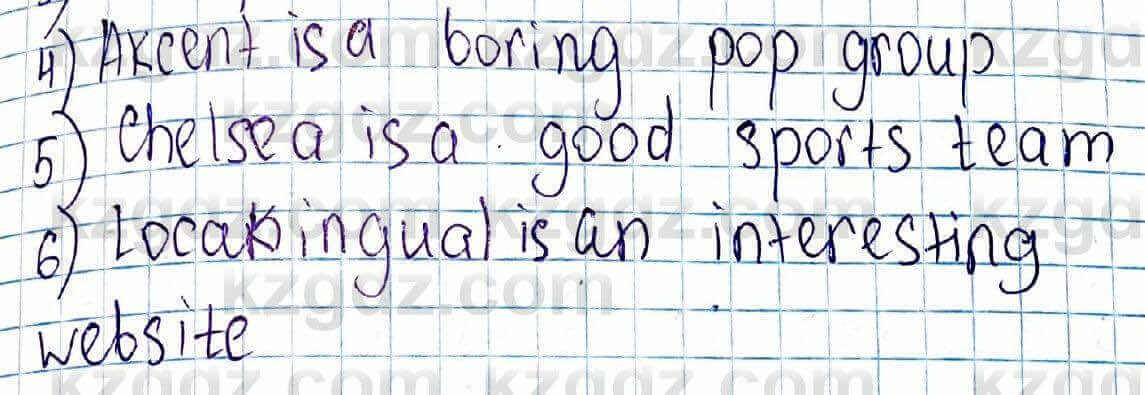 4) Akcent is a boring pop group
5) Chelsea is a good sports team
6) Locakingual is an interesting
website
kzgdz.com